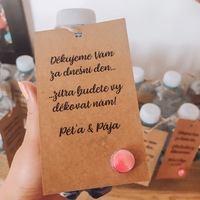 Děkujeme Vám
za dnešní den...
...zítra budete vy
děkovat nám!
Péťa & Pája